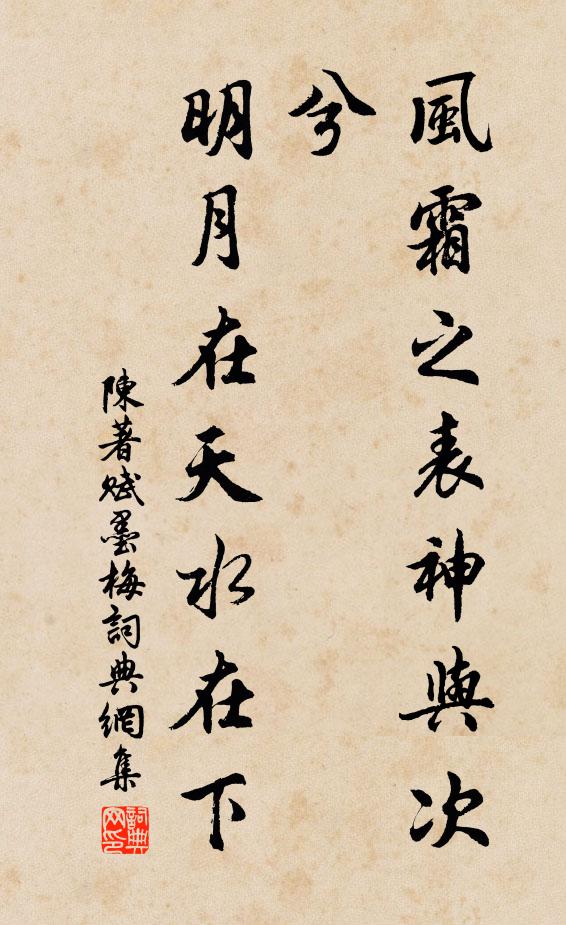 風霜之表神與次
兮
明月在天水在下
陳著賦墨梅詞典網集
詞典网印